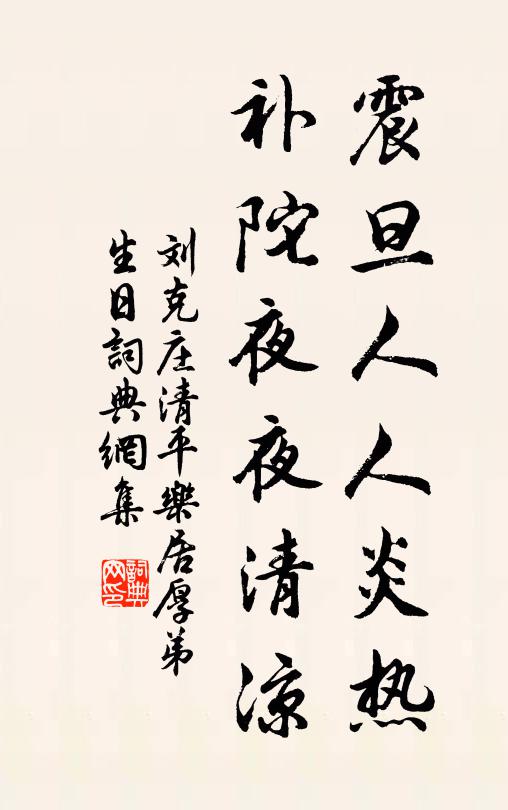 震旦人人炎热
补陀夜夜清凉
刘克庄清平樂居厚弟
生日詞典網集
詞典網印